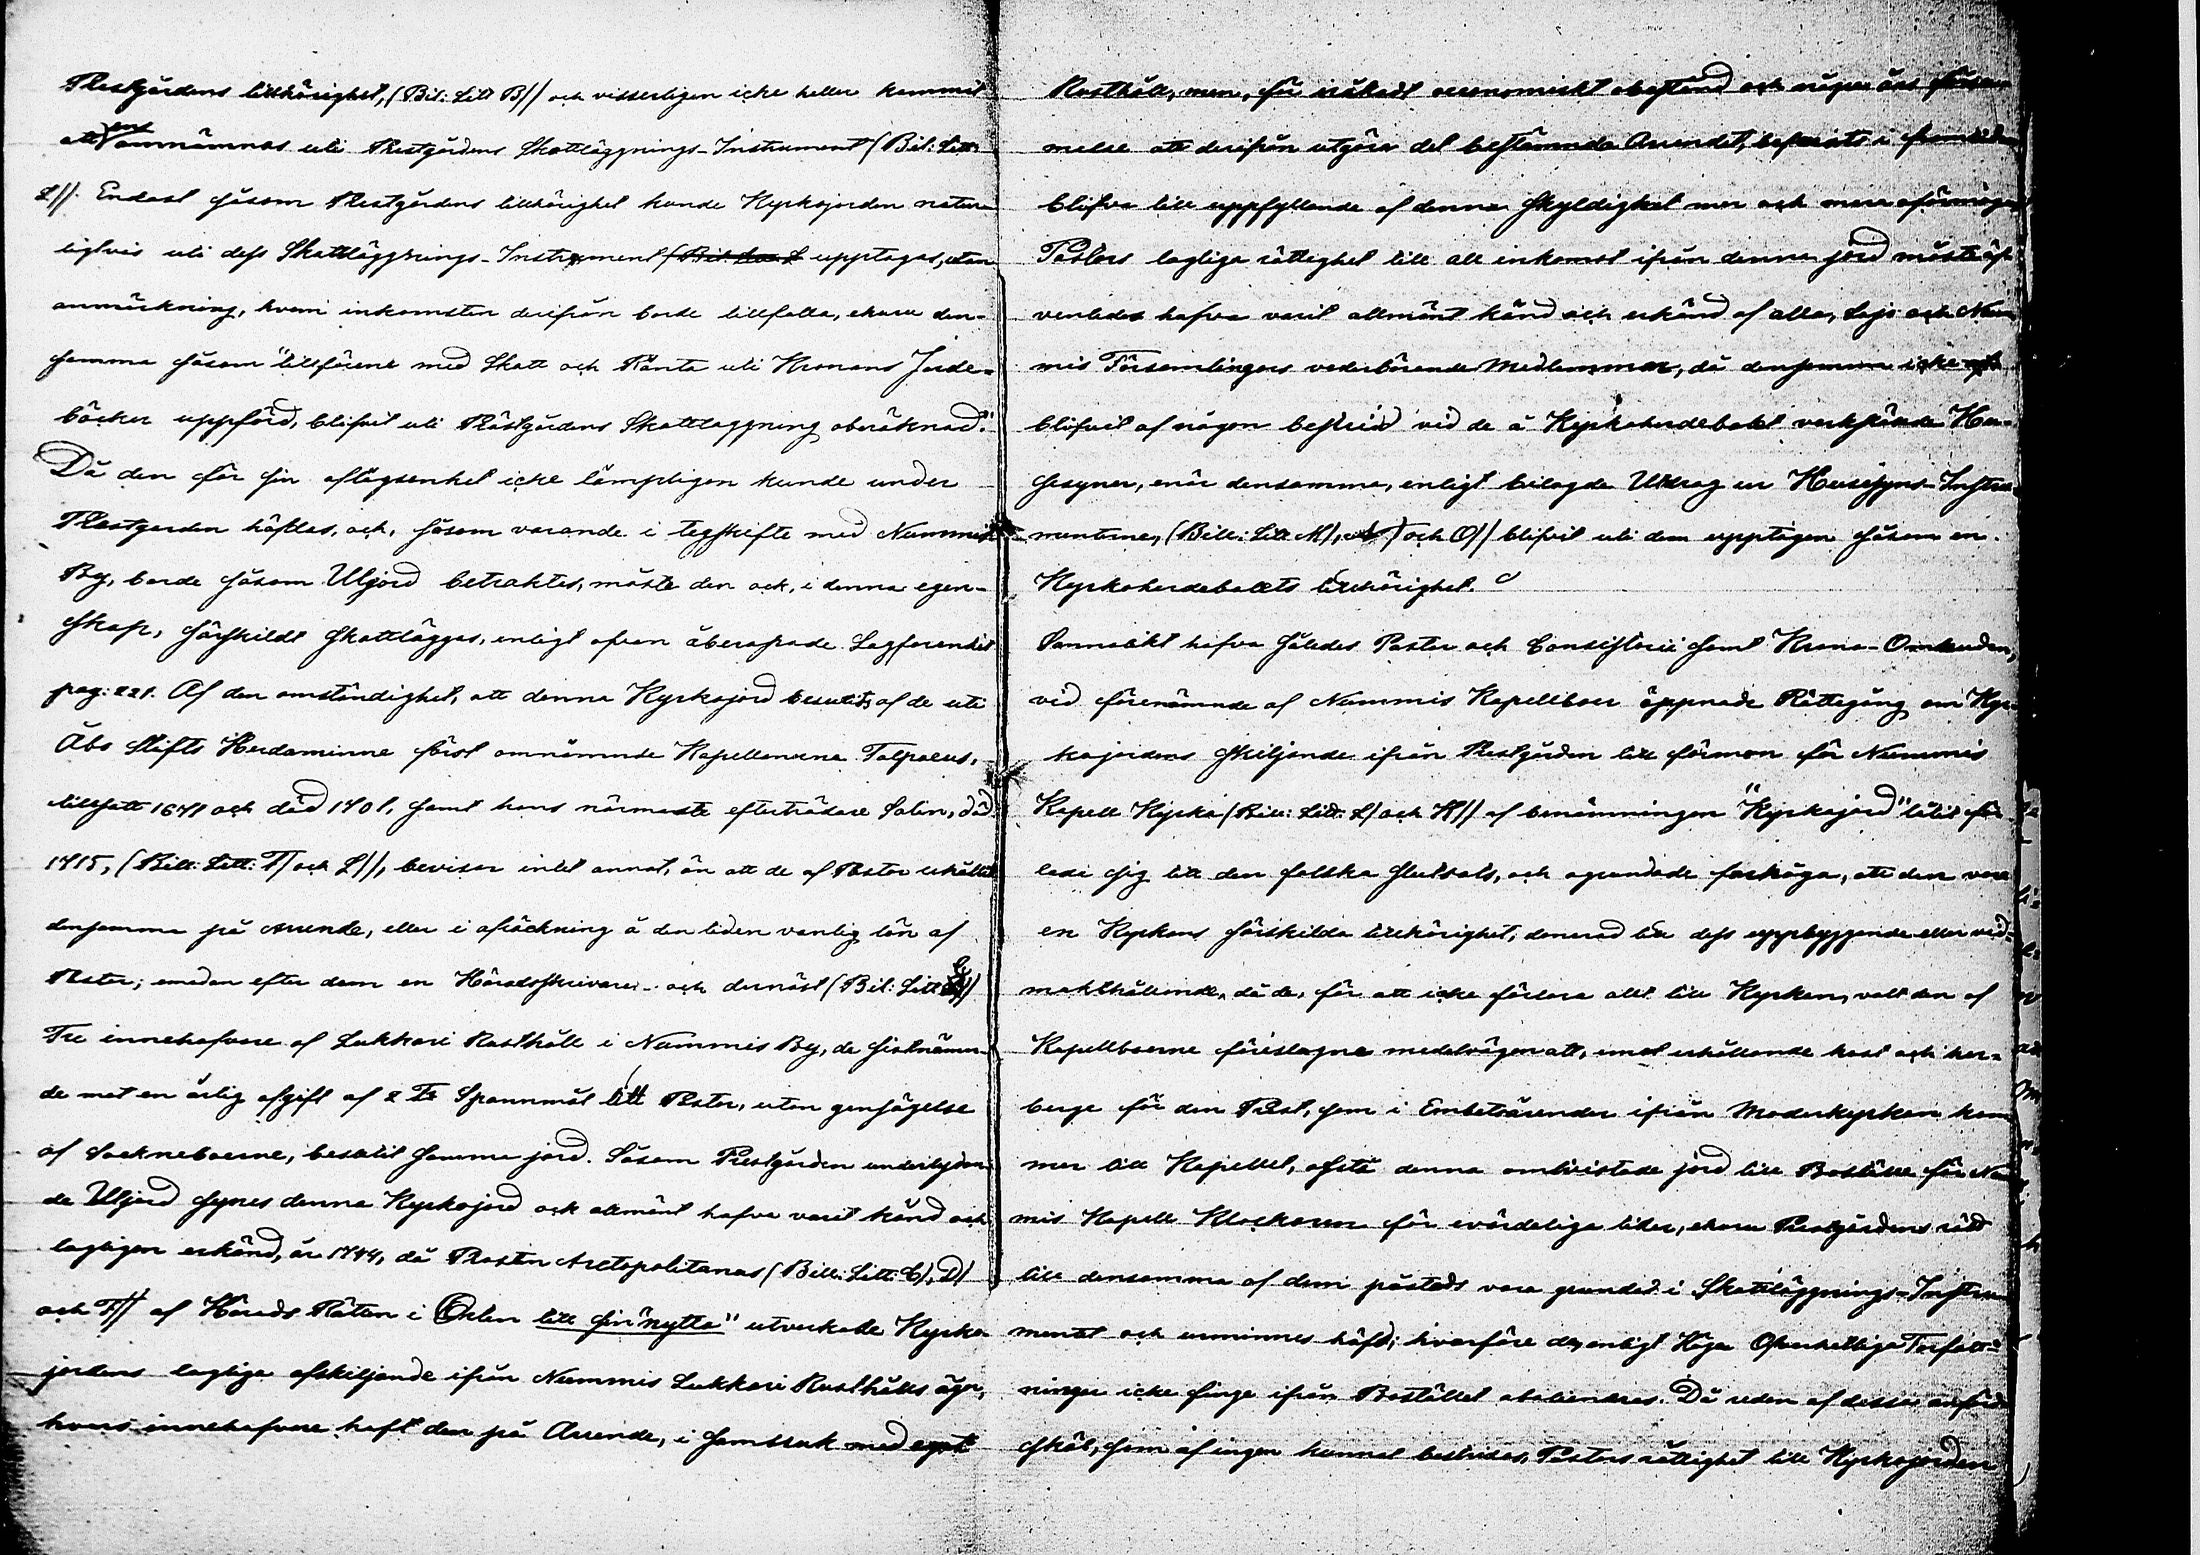 Prestgårdens tillhörighet, (Bil: Litt B)/ och visserligen icke heller kommit
att ens omnämnas uti Prestgårdens Skattläggnings-Instrument (Bil: Litt:
L)/. Endast såsom Prestgårdens tillhörighet kunde Kyrkojorden natur
ligtvis uti dess Skattläggnings-Instrument upptagas, utan
anmärkning, hvem inkomsten derifrån borde tillfalla, ehuru den-
samma såsom "tillförene med Skatt och Ränta uti Kronans Jorde-
böcker uppförd, blifvit uti Prästgårdens Skattläggning oberäknad."
Då den för sin aflägsenhet icke lämpligen kunde under
Prestgården häfdas, och, såsom varande i tegskifte med Nummis
By, borde såsom Utjord betraktas, måste den ock, i denna egen-
skap, särskildt skattläggas, enligt ofvan åberopade Lagfarenhet
pag: 221. Af den omständighet, att denna Kyrkojord besutits af de uti
Åbo Stifts Herdaminne först omnämnde Kapellanerna Talpaeus,
tillsatt 1671 och död 1701, samt hans närmaste efterträdare Salin, död
1715, (Bill: Litt: T) och L)/, bevisar intet annat, än att de af Pastor erhållit
densamma på arrende, eller i afräckning å den tiden vanlig lön af
Pastor; emedan efter dem en Häradsskrivare- och dernäst (Bil: Litt
Tre innehafvare af Lukkari Rusthåll i Nummis By, de sistnämn
de mot en årlig afgift af 2 Tr Spannmål till Pastor, utan gensägelse
af Sockneboerne, besutit samma jord. Såsom Prestgården underlydan
de Utjord synes denna Kyrkojord ock allmänt hafva varit känd och
lagligen erkänd, år 1744, då Prosten Arctopolitanus (Bill: Litt: C), D)
och F)/ af Härads Rätten i Orten till sin "nytta" utverkade Kyrko
jordens lagliga afskiljande ifrån Nummis Lukkari Rusthålls ägor,
hvars innehafvare haft den på Arrende, i sambruk med eget
Rusthåll, men, för iråkadt oeconomiskt obestånd och några års försum
melse att derifrån utgöra det bestämnda Arrendet, befarats i framtiden
blifva till uppfyllande af denna skyldighet mer och mera oförmögen
Pastors lagliga rättighet till all inkomst ifrån denna jord måste äf
venledes hafva varit allmänt känd och erkänd af alla, Lojo och Num
mis Församlingars vederbörande Medlemmar, då densamma icke
blifvit af någon bestridd vid de å Kyrkoherdebolet verkstälde Hu-
sesyner, enär densamma, enligt bilagde Utdrag ur Husesyns-Instru
menterne, (Bill: Litt M), och O)/ blifvit uti dem upptagen såsom en
Kyrkoherdebolets tillhörighet.
Sannolikt hafva således Pastor och Consistorii samt Krono-Ombuden,
vid förenämnde af Nummis Kapellboer öppnade Rättegång om Kyr-
kojordens skiljande ifrån Prestgården till förmon för Nummis
Kapell Kyrka (Bill: Litt: L) och H)/ af benämningen "Kyrkojord" låtit för
leda sig till den falska slutsats, och ogrundade farhåga, att den vore
en Kyrkans särskilda tillhörighet, donerad till dess uppbyggande eller vid-
makthållande, då de, för att icke förlora allt till Kyrkan, valt den af
Kapellboerne föreslagne medelvägen att, emot erhållande kost och her-
berge för den Prest, som i Embetsärender ifrån Moderkyrkan kom
mer till Kapellet, afstå denna omtvistade jord till Boställe för Num
mis Kapell Klockaren för evärdeliga tider, ehuru Prestgårdens rätt
till densamma af dem påståds vara grundad i Skattläggnings-Instru
mentet och urminnes häfd; hvarföre de, enligt Höga Öfverhetliga Författ-
ningar icke finge ifrån Bostället abalienéras. Då redan af dessa anförde
skäl, som af ingen kunnat bestridas, Pastors rättighet till Kyrkojorden